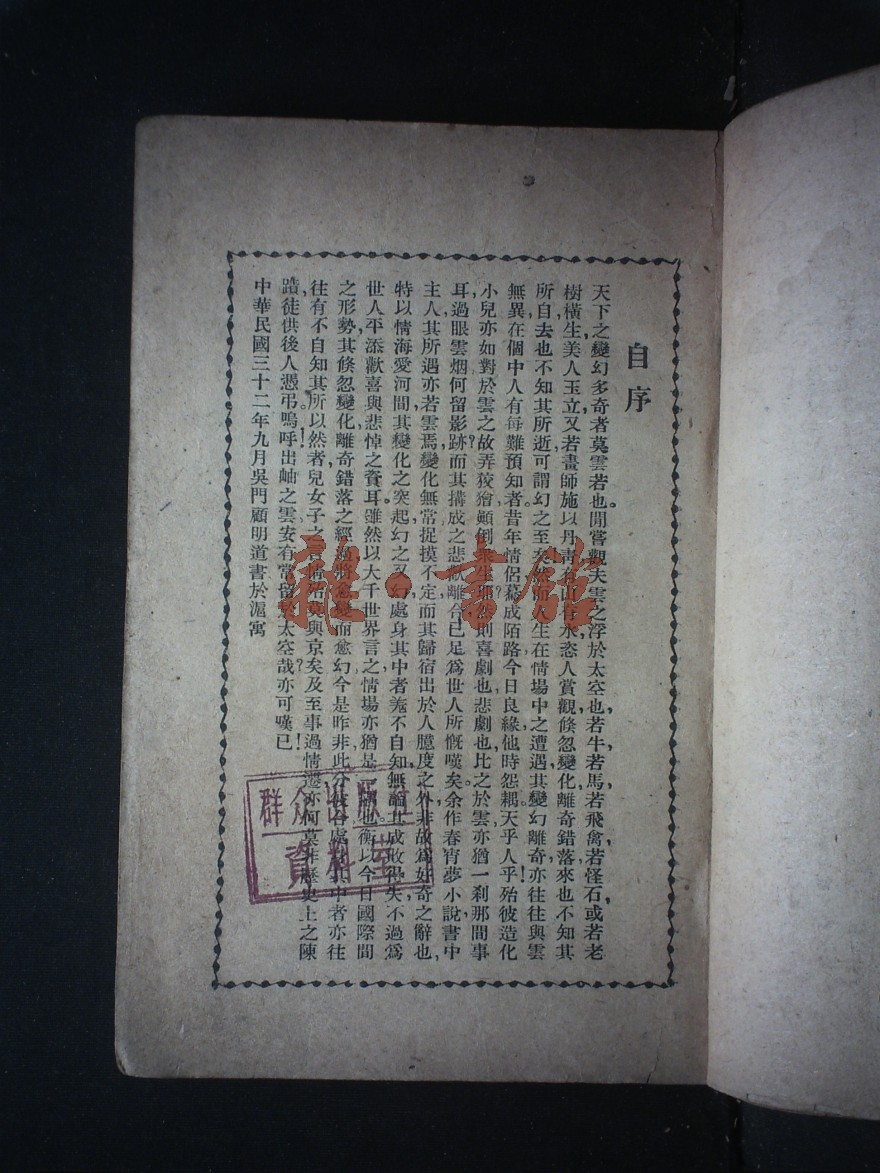 自序
天下之變幻多奇者莫雲若也。閒嘗觀夫雲之浮於太空也，若牛，若馬，若飛禽，若怪石，或若老
樹橫生，美人玉立，又若畫師施以丹靑，有山有水，恣人賞觀，倏忽變化，離奇錯落，來也不知其
所自，去也不知其所逝，可謂幻之至矣。然而人生在情場中之遭遇，其變幻離奇，亦往往與雲
無異，在個中人有每難預知者。昔年情侶，驀成陌路，今日良緣，他時怨耦，天乎人乎！殆彼造化
小兒，亦如對於雲之故弄狡獪，顚倒衆生耶？然則喜劇也，悲劇也，比之於雲，亦猶一刹那間事
耳，過眼雲烟，何留影跡？而其搆成之悲歡離合，已足爲世人所慨嘆矣。余作春宵夢小說，書中
主人，其所遇亦若雲焉，變化無常，捉摸不定，而其歸宿出於人臆度之外，非故爲好奇之辭也，
特以情海愛河間，其變化之突起，幻之又幻，處身其中者，羌不自知，無論其成敗得失，不過爲
世人平添歡喜與悲悼之資耳。雖然，以大千世界言之，情場亦猶是 也。衡以今日國際間
之形勢，其倏忽變化，離奇錯落之經過，將愈變而愈幻，今是昨非，此分彼合，處 其中者，亦往
往有不自知其所以然者，兒女子之言情，殆莫與京矣。及至事過情遷，亦何莫非歷史上之陳
蹟，徒供後人憑弔。嗚呼！出岫之雲，安有常留於太空哉？亦可嘆已！
中華民國三十二年九月吳門顧明道書於滬寓
群众出版社
資料室
雜·書館